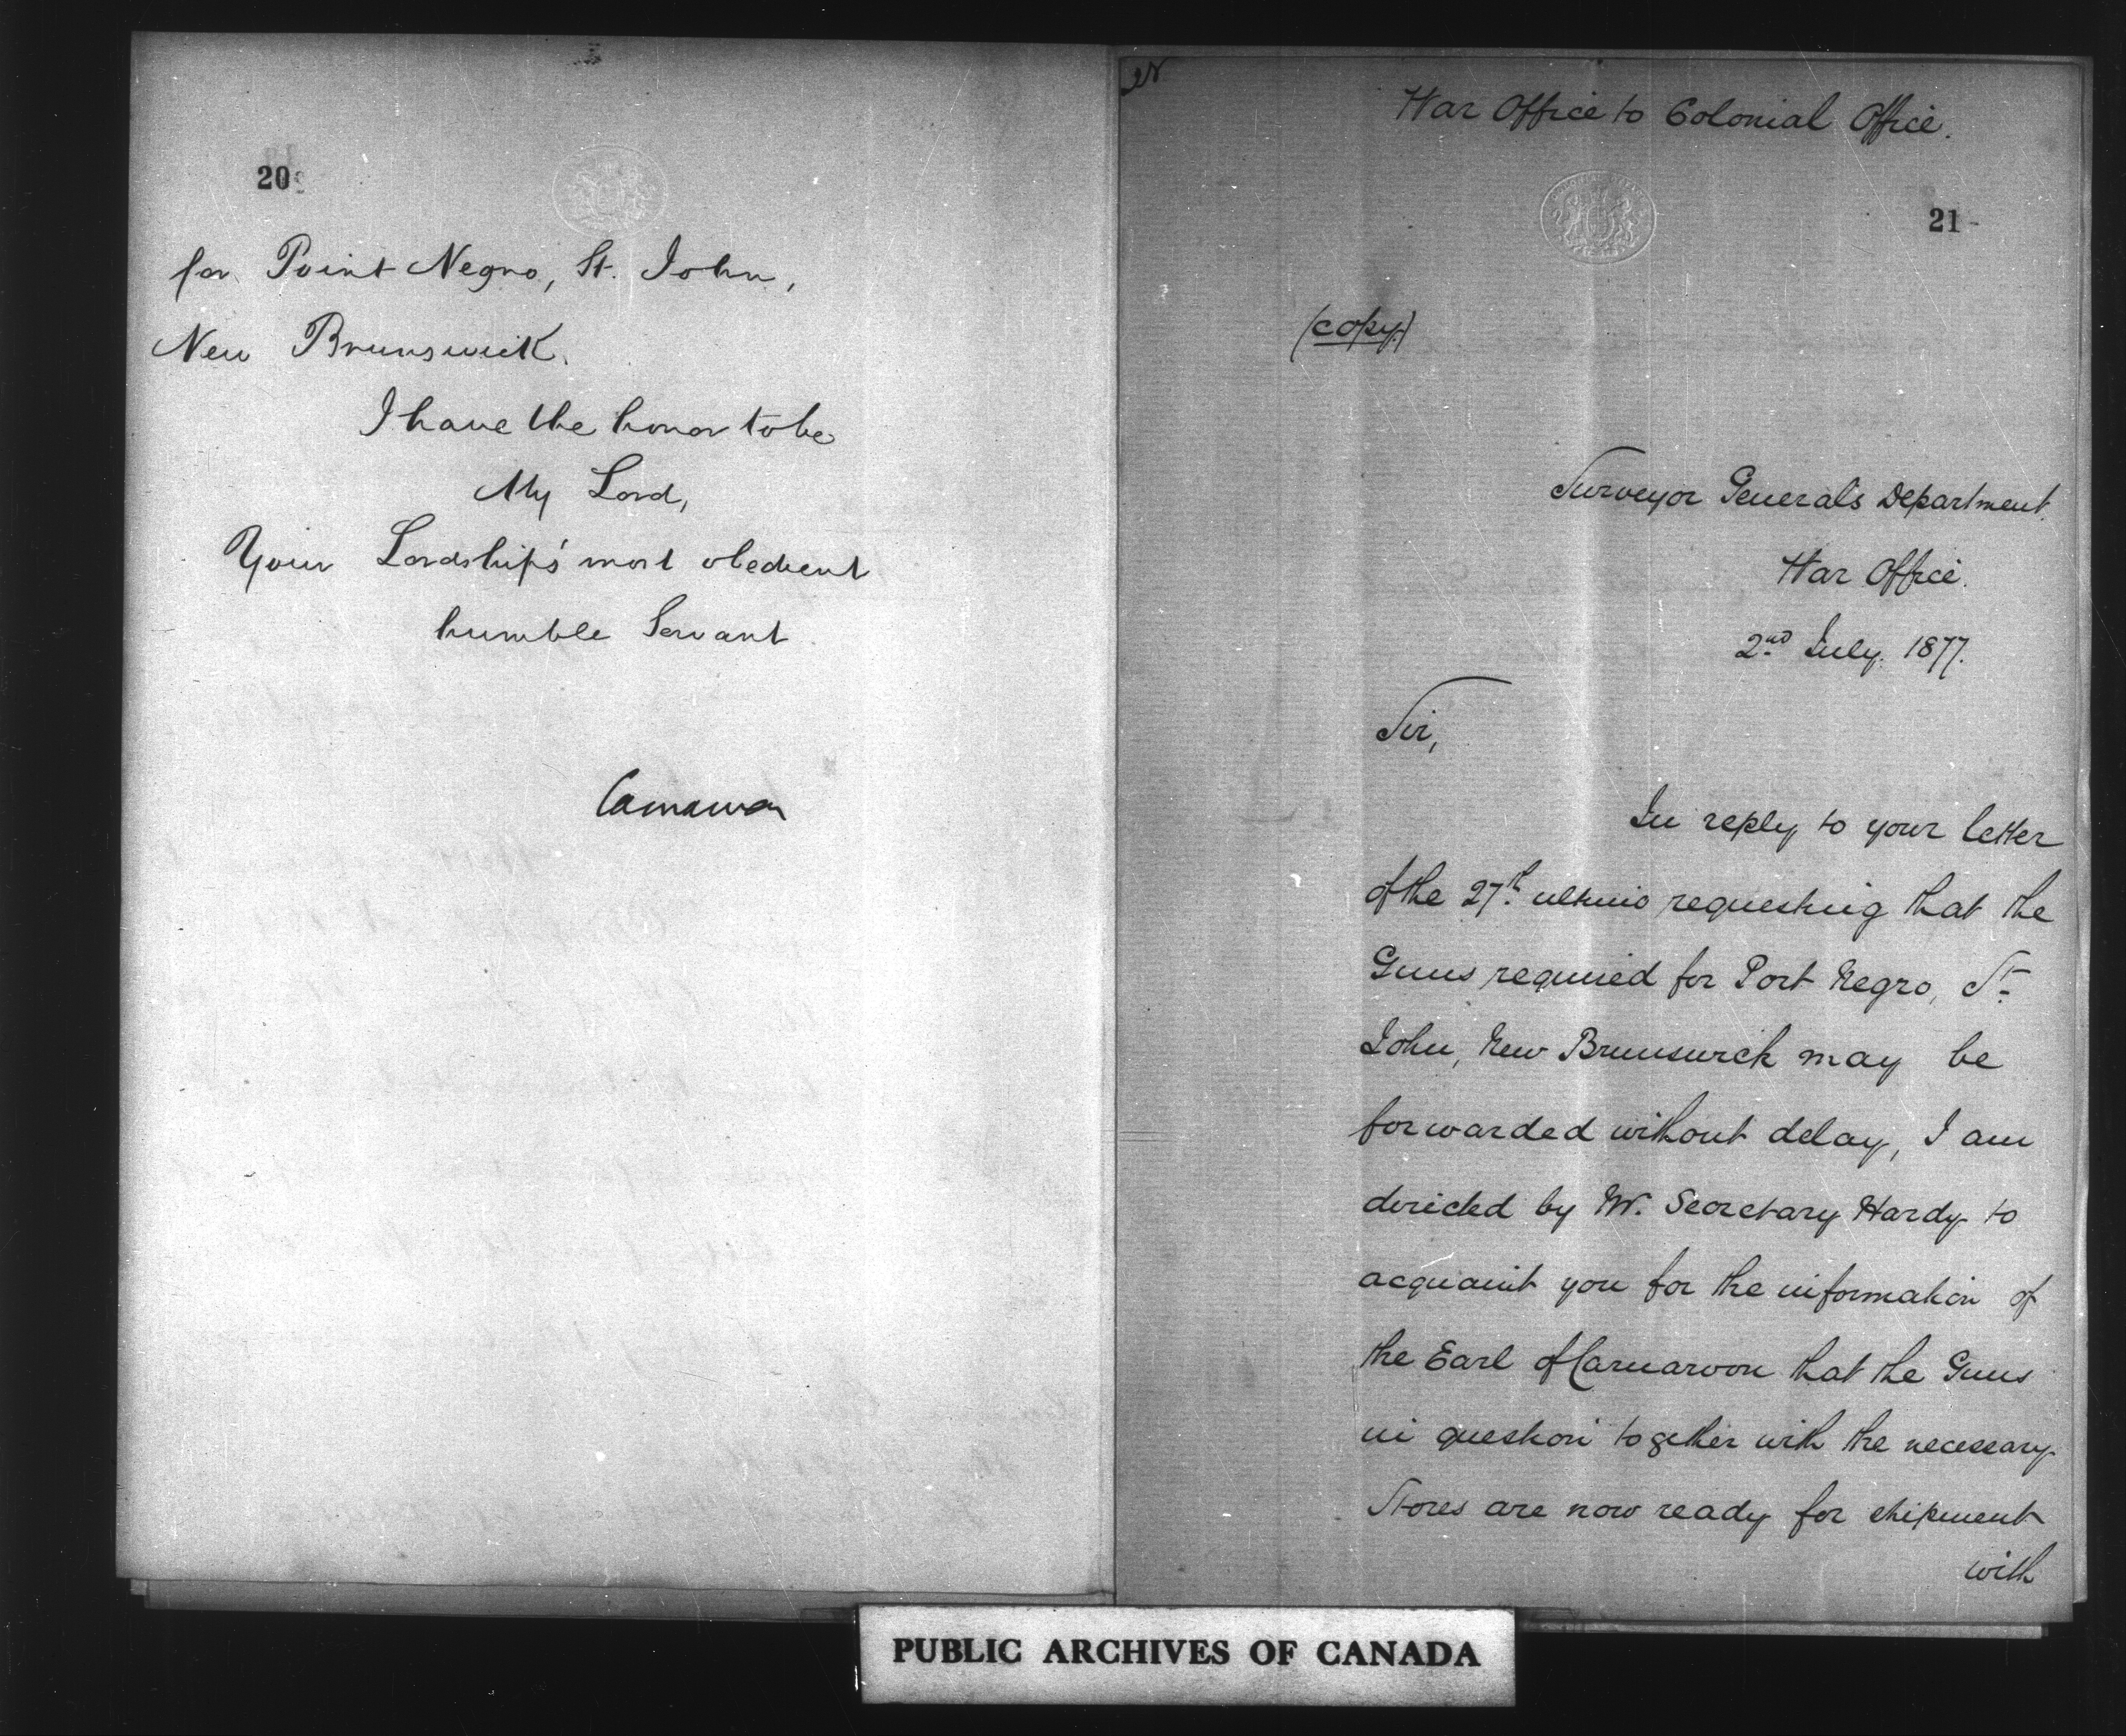 20
for Point Negro, St. John,
New Brunswick.
I have the honor to be
My Lord,
Your Lordship's most obedient
humble Servant
Carnarvon
War Office to Colonial Office.
21
(copy)
Surveyor General's Department.
War Office.
2nd July. 1877.
Sir,
In reply to your letter
of the 27th ultimo requesting that the
Guns required for Port Negro, St.
John, New Brunswick may be
forwarded without delay, I am
directed by Mr. Secretary Hardy to
acquaint you for the information of
the Earl of Carnarvon that the Guns
in question together with the necessary
Stores are now ready for shipment
with
PUBLIC ARCHIVES OF CANADA